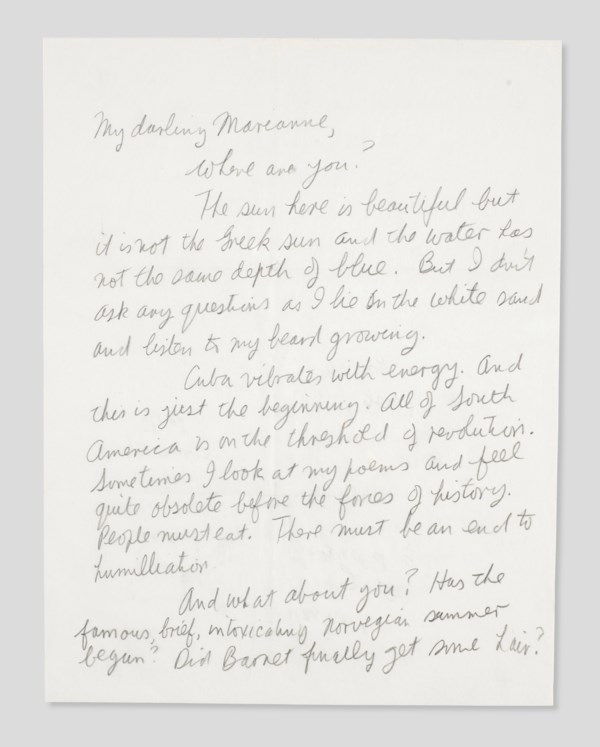 My darling Marianne,
Where are you?
The sun here is beautiful but
it is not the Greek sun and the water has
not the same depth of blue. But I don't
ask any questions as I lie on the white sand
and listen to my beard growing.
Cuba vibrates with energy. And
this is just the beginning. All of South
America is on the threshold of revolution.
Sometimes I look at my poems and feel
quite obsolete before the forces of history.
People must eat. There must be an end to
humiliation
And what about you? Has the
famous, brief, intoxicating norwegian summer
begun? Did Barnet finally get some hair?